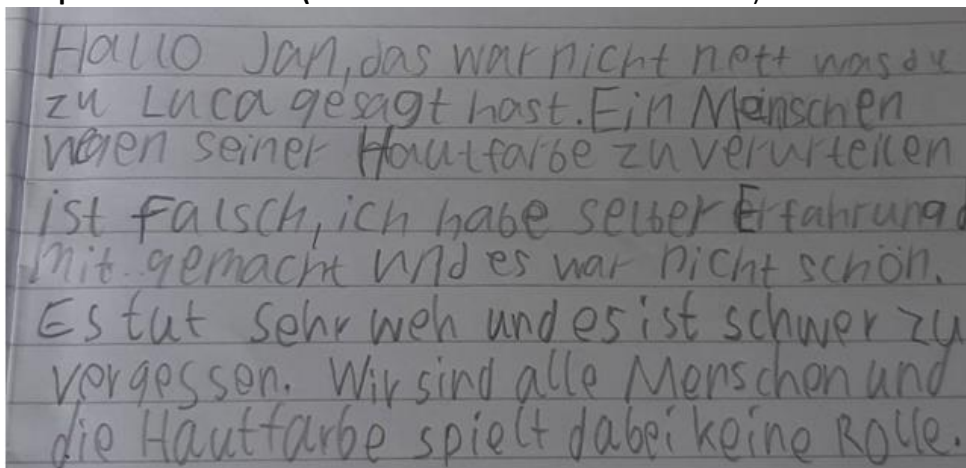 Hallo Jan, das war nicht nett was du
zu Luca gesagt hast. Ein Menschen
wegen seiner Hautfarbe zu verurteilen
ist falsch, ich habe selber Erfahrung
mit gemacht und es war nicht schön.
Es tut sehr weh und es ist schwer zu
vergessen. Wir sind alle Menschen und
die Hautfarbe spielt dabei keine Rolle.